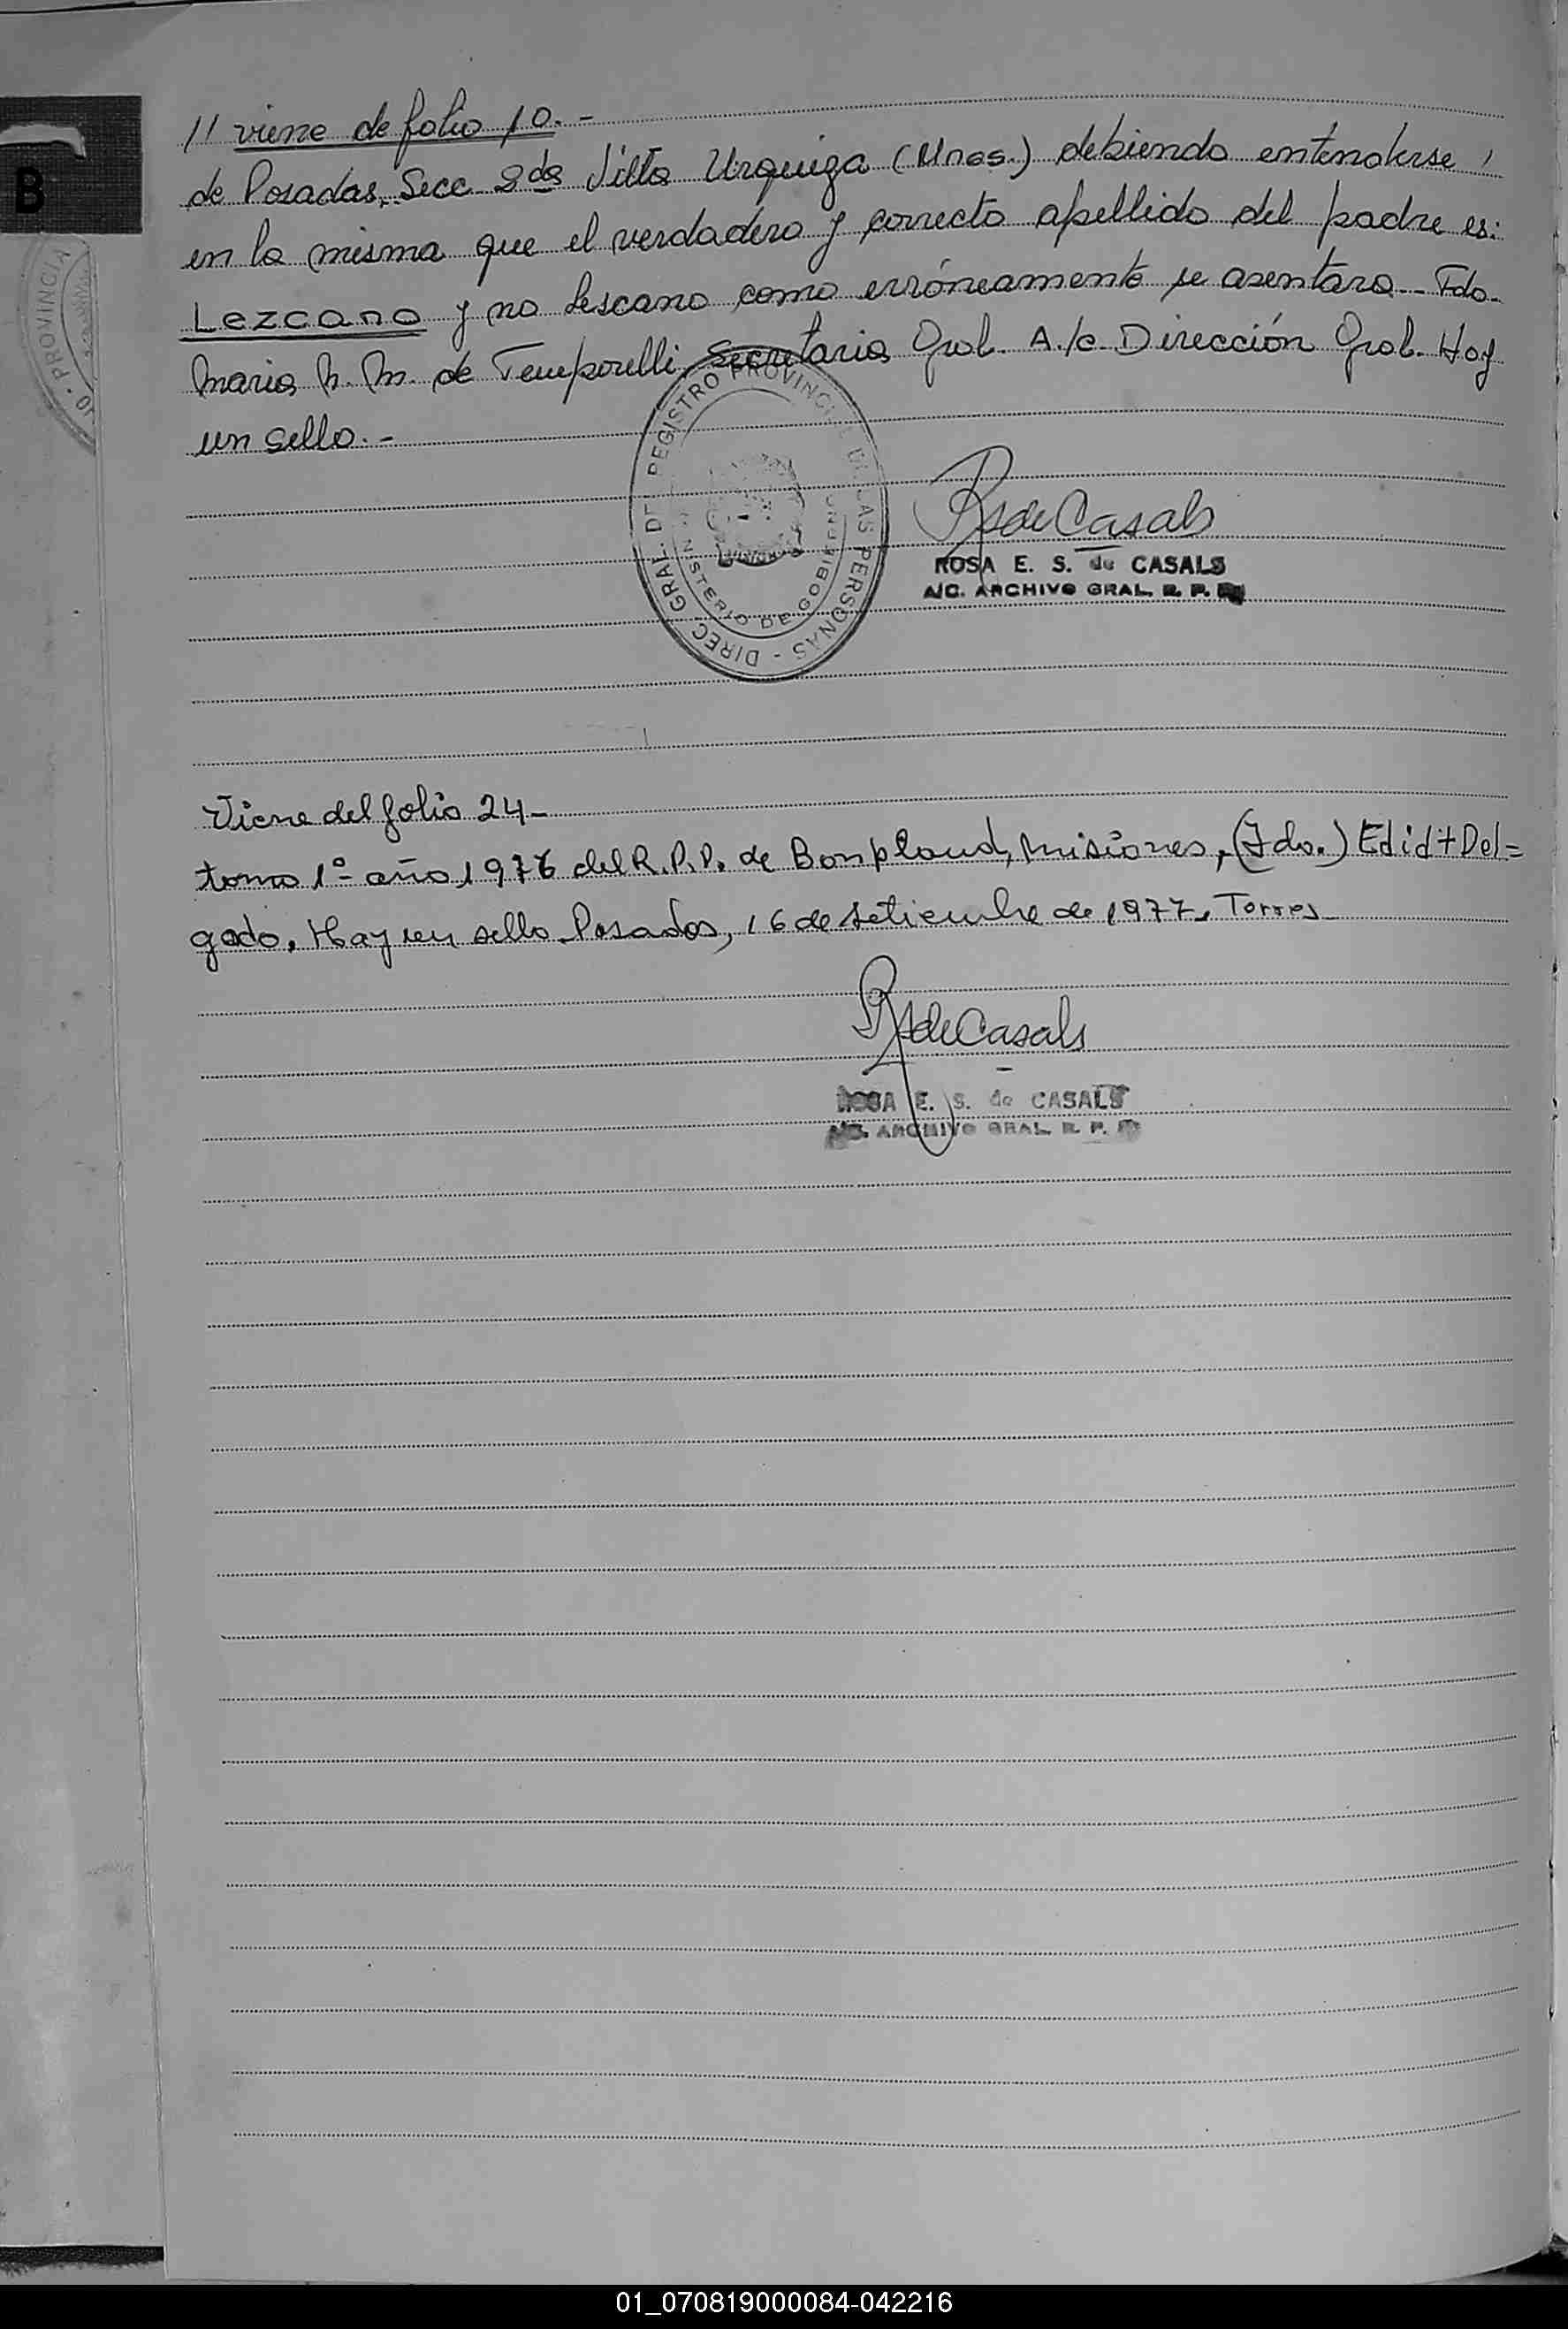 // viene de folio 10.-
de Posadas, Secc. 2da Villa Urquiza (Mnes.) debiendo entenderse
en la misma que el verdadero y correcto apellido del padre es:
Lezcano y no Lescano como erróneamente se asentara. Fdo.
Maria N. M. de Temporelli, Secretaria Gral. A/c. Dirección Gral. Hay
un sello.-
DIREC. GRAL. DEL REGISTRO PROVINCIAL DE LAS PERSONAS -
MINISTERIO DE GOBIERNO
MISIONES
RS de Casals
ROSA E. S. de CASALS
A/C. ARCHIVO GRAL. R. P. P.
Viene del folio 24-
tomo 1º año 1976 del R.P.P. de Bonpland, Misiones, (Fdo.) Edid + Del=
gado. Hay un sello. Posadas, 16 de setiembre de 1977. Torres
RS de Casals
ROSA E. S. de CASALS
A/C. ARCHIVO GRAL. R. P. P.
B
PROVINCIA
01_070819000084-042216